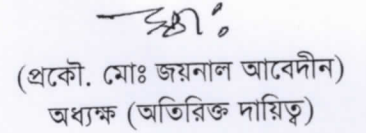 (প্রকৌ. মোঃ জয়নাল আবেদীন)
অধ্যক্ষ (অতিরিক্ত দায়িত্ব)